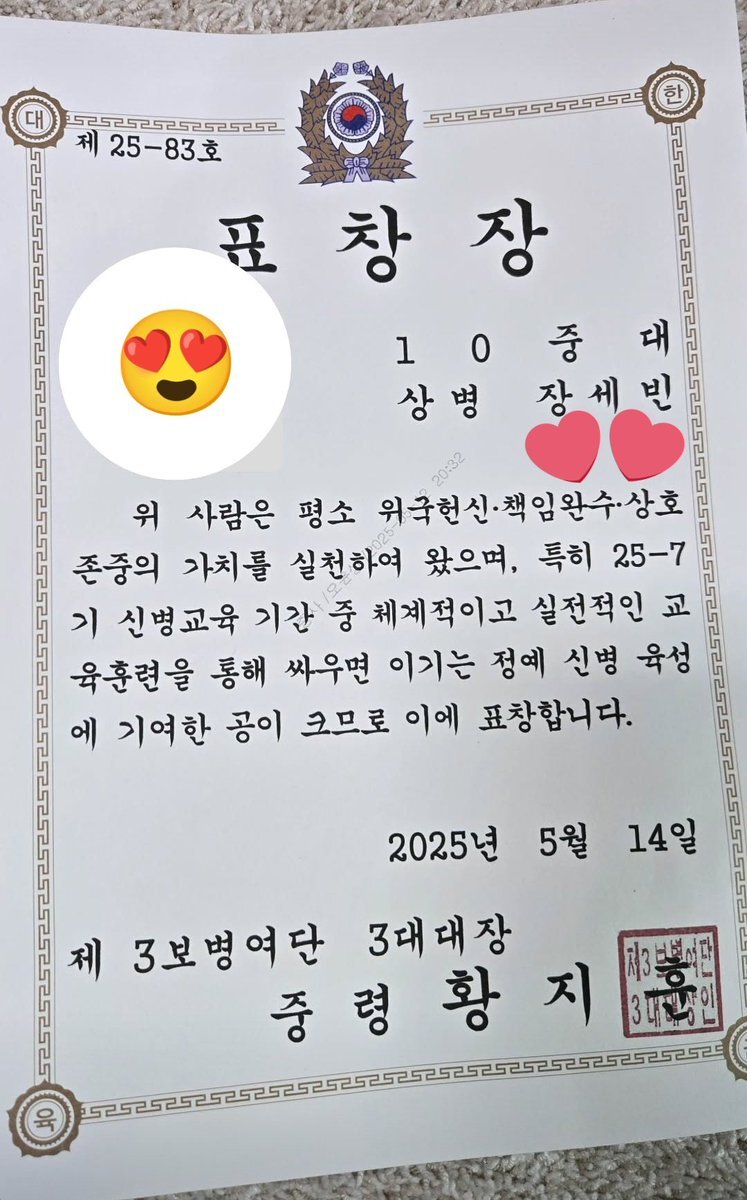 대 한
제 25-83호
표 창 장
1 0 중 대
상병 장세빈
위 사람은 평소 위국헌신·책임완수·상호
존중의 가치를 실천하여 왔으며, 특히 25-7
기 신병교육 기간 중 체계적이고 실전적인 교
육훈련을 통해 싸우면 이기는 정예 신병 육성
에 기여한 공이 크므로 이에 표창합니다.
2025년 5월 14일
제 3보병여단 3대대장
중 령 황 지 훈
제3보병여단
3대대장인
육